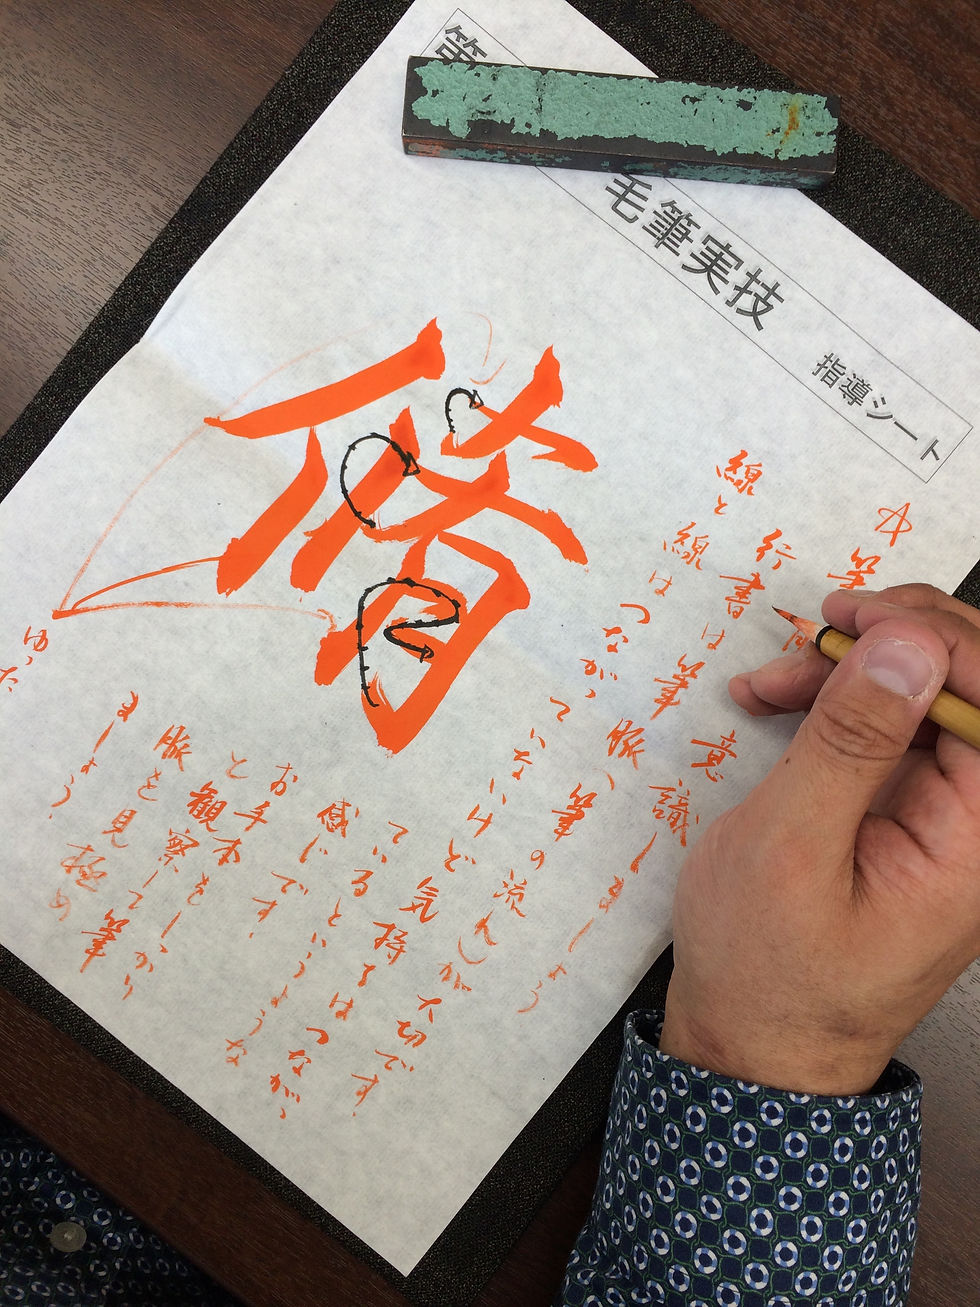 第
毛筆実技
指導シート
脩
☆筆
意識しましょう
行書は筆脈(筆の流れ)が大切です。
線と線はつながっていないけど気持ちはつながっ
ているというような
感じです。
お手本をしっかり
と観察して筆
脈を見極め
ましょう。
ゆった